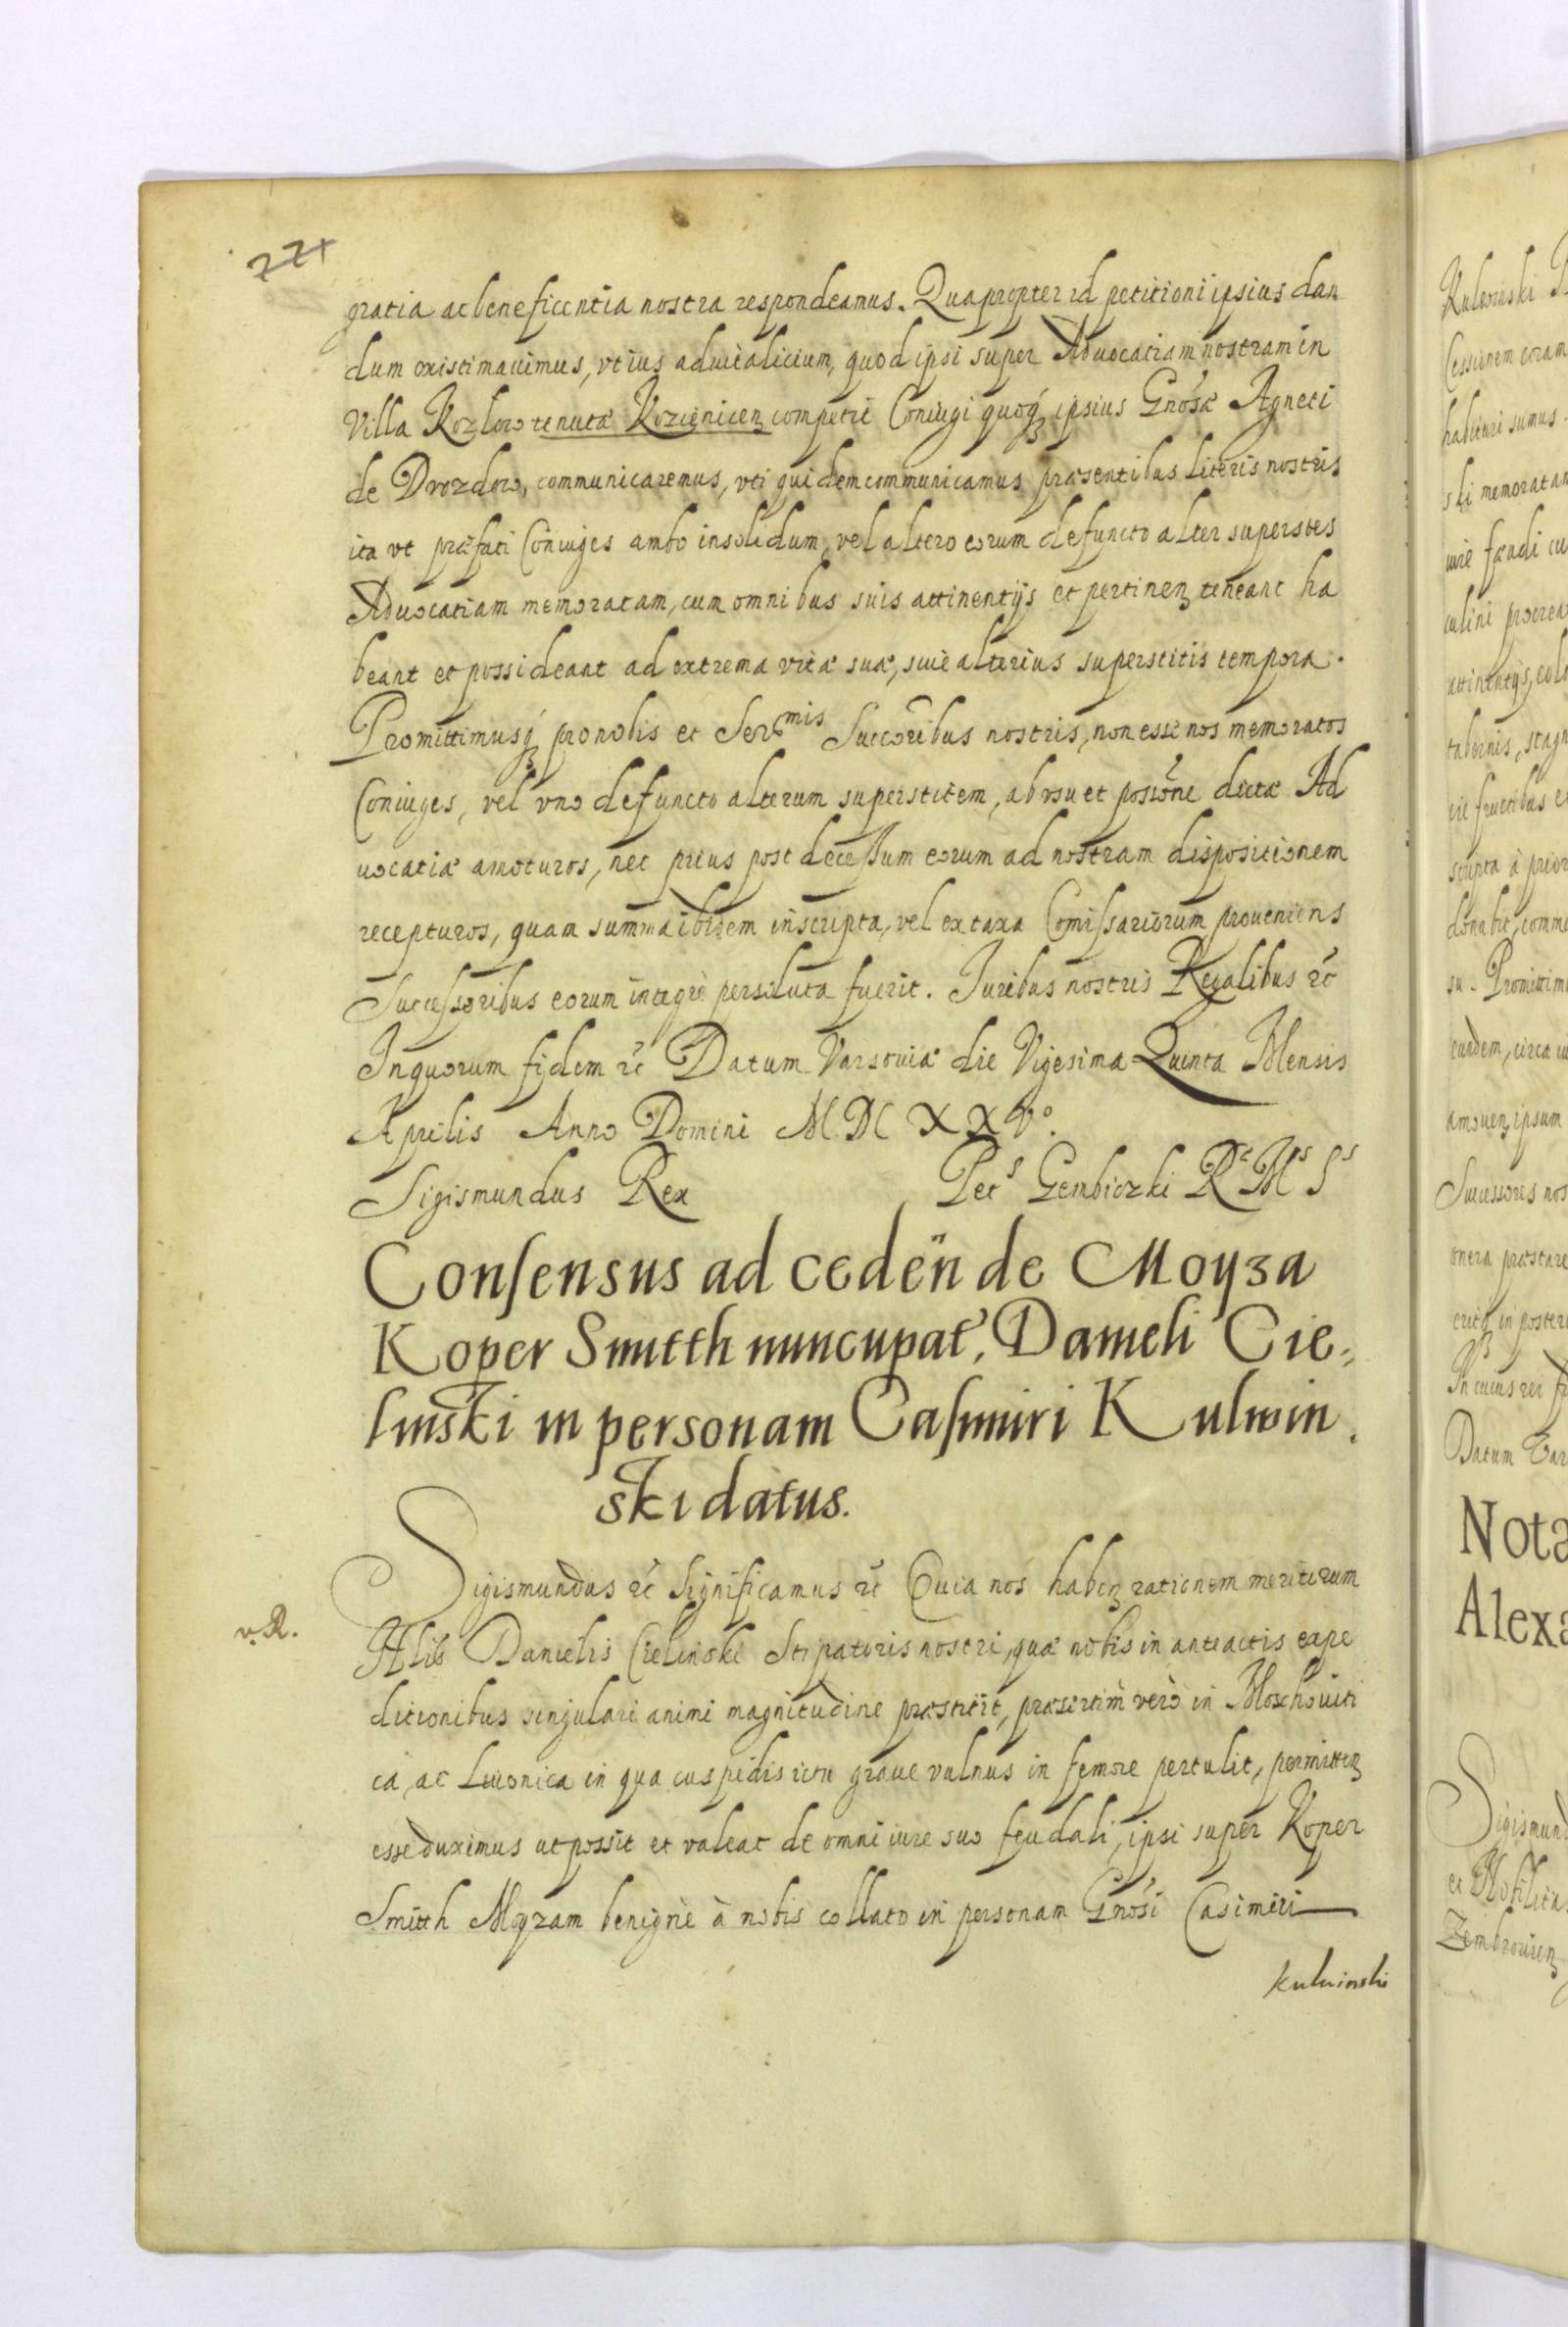 221
gratia ac beneficentia nostra respondeamus. Quapropter id petitioni ipsius dan
dum existimauimus, vt ius aduitalicium, quod ipsi super Aduocatiam nostram in
Villa Kozlow tenutæ Kozienicen competit Coniugi quoq ipsius Gnosæ Agneti
de Drozdow, communicaremus, vti quidem communicamus præsentibus Literis nostris
ita vt præfati Coniuges ambo insolidum, vel altero eorum defuncto alter superstes
Aduocatiam memoratam, cum omnibus suis attinentijs et pertinen teneant ha
beant et possideant ad extrema vitæ suæ, siue alterius superstitis tempora.
Promittimusq pro nobis et Ser^mis Succoribus nostris, non esse nos memoratos
Coniuges, vel vno defuncto alterum superstitem, ab vsu et possione dictæ Ad
uocatiæ amoturos, nec prius post decessum eorum ad nostram dispositionem
recepturos, quam summa ibidem inscripta, vel ex taxa Comissariorum proueniens
Successoribus eorum integrè persoluta fuerit. Iuribus nostris Regalibus etc
In quorum fidem etc Datum Varsouiæ die Vigesima Quinta Mensis
Aprilis Anno Domini M.DC XXV°.
Sigismundus Rex Pet^s Gembiczki R^e M^s S^s
Consensus ad ceden de Moyza
Koper Smitth nuncupat, Danieli Cie-
linski in personam Casimiri Kulwin.
ski datus.
Sigismundus etc Significamus etc Quia nos haben rationem meritorum
v. R.
Nlis Danielis Cielinski Stipatoris nostri, quæ nobis in anteactis expe
ditionibus singulari animi magnitudine præstitit, præsertim verò in Moschouiti
ca, ac Liuonica in qua cuspidis ictu graue vulnus in femore pertulit, permitten
esse duximus ut possit et valeat de omni iure suo feudali, ipsi super Koper
Smitth Moyzam benignè à nobis collato in personam Gnosi Casimiri
Kulwinski
Kulwinski
Cessionem coram
habituri sumus.
ski memoratam
iure feudi cu
culini procrea
attinentijs, colo
tabernis, stagn
cie fructibus e
scripta à prior
donabit, comme
su. Promittim
eundem, circa iu
amouen ipsum
Successores nos
onera præstare
eritq in poster
In cuius rei fi
Datum Var
Nota
Alexa
Sigismund
et Nobilita
Zembrouien